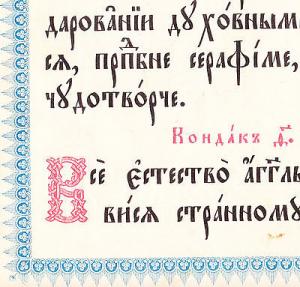 дарова́нїи дꙋхо́вным
сѧ, прпⷣбне серафі́ме,
чꙋдотво́рче.
Конда́къ а҃.
Всѐ є҆стество̀ а҆́гг҃ль
ви́сѧ стра́нномꙋ